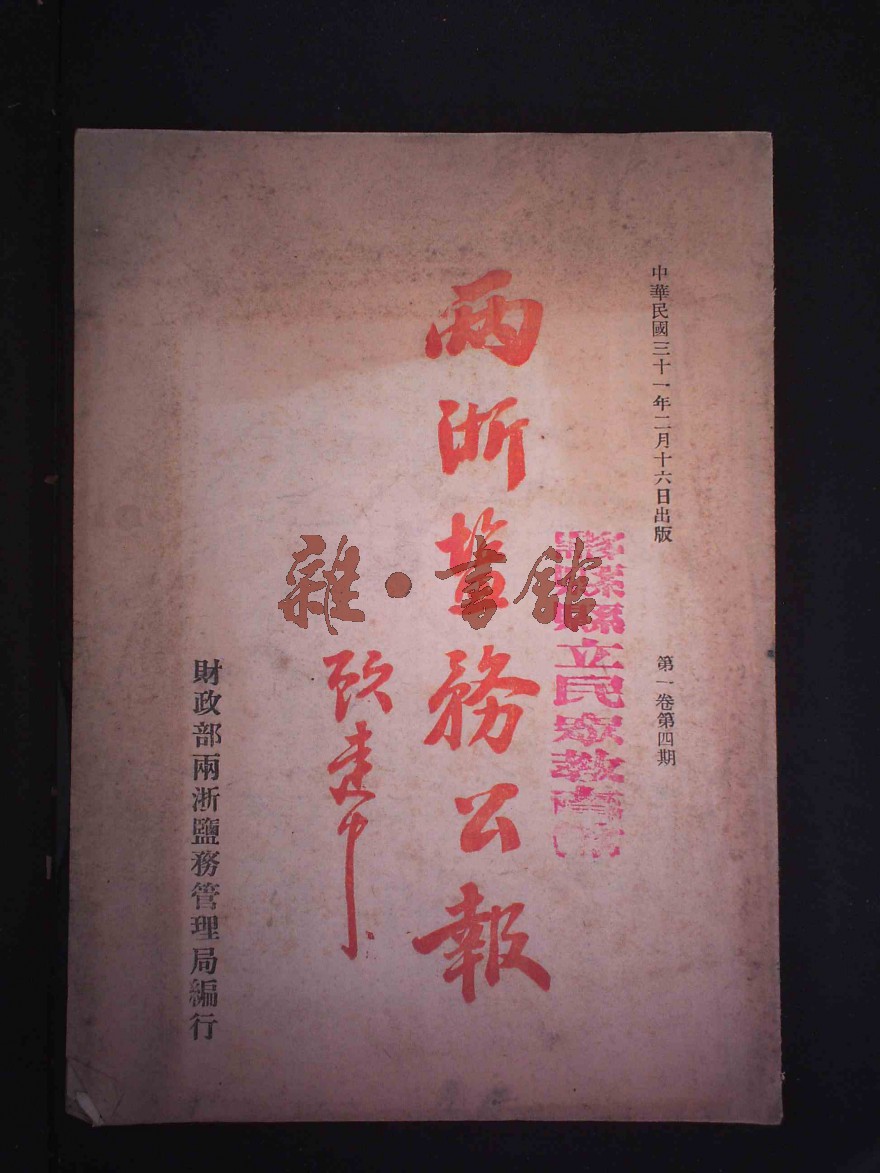 中華民國三十一年二月十六日出版
第一卷第四期
縣立民眾教育館
兩浙鹽務公報
顧建中
財政部兩浙鹽務管理局編行
雜·書館